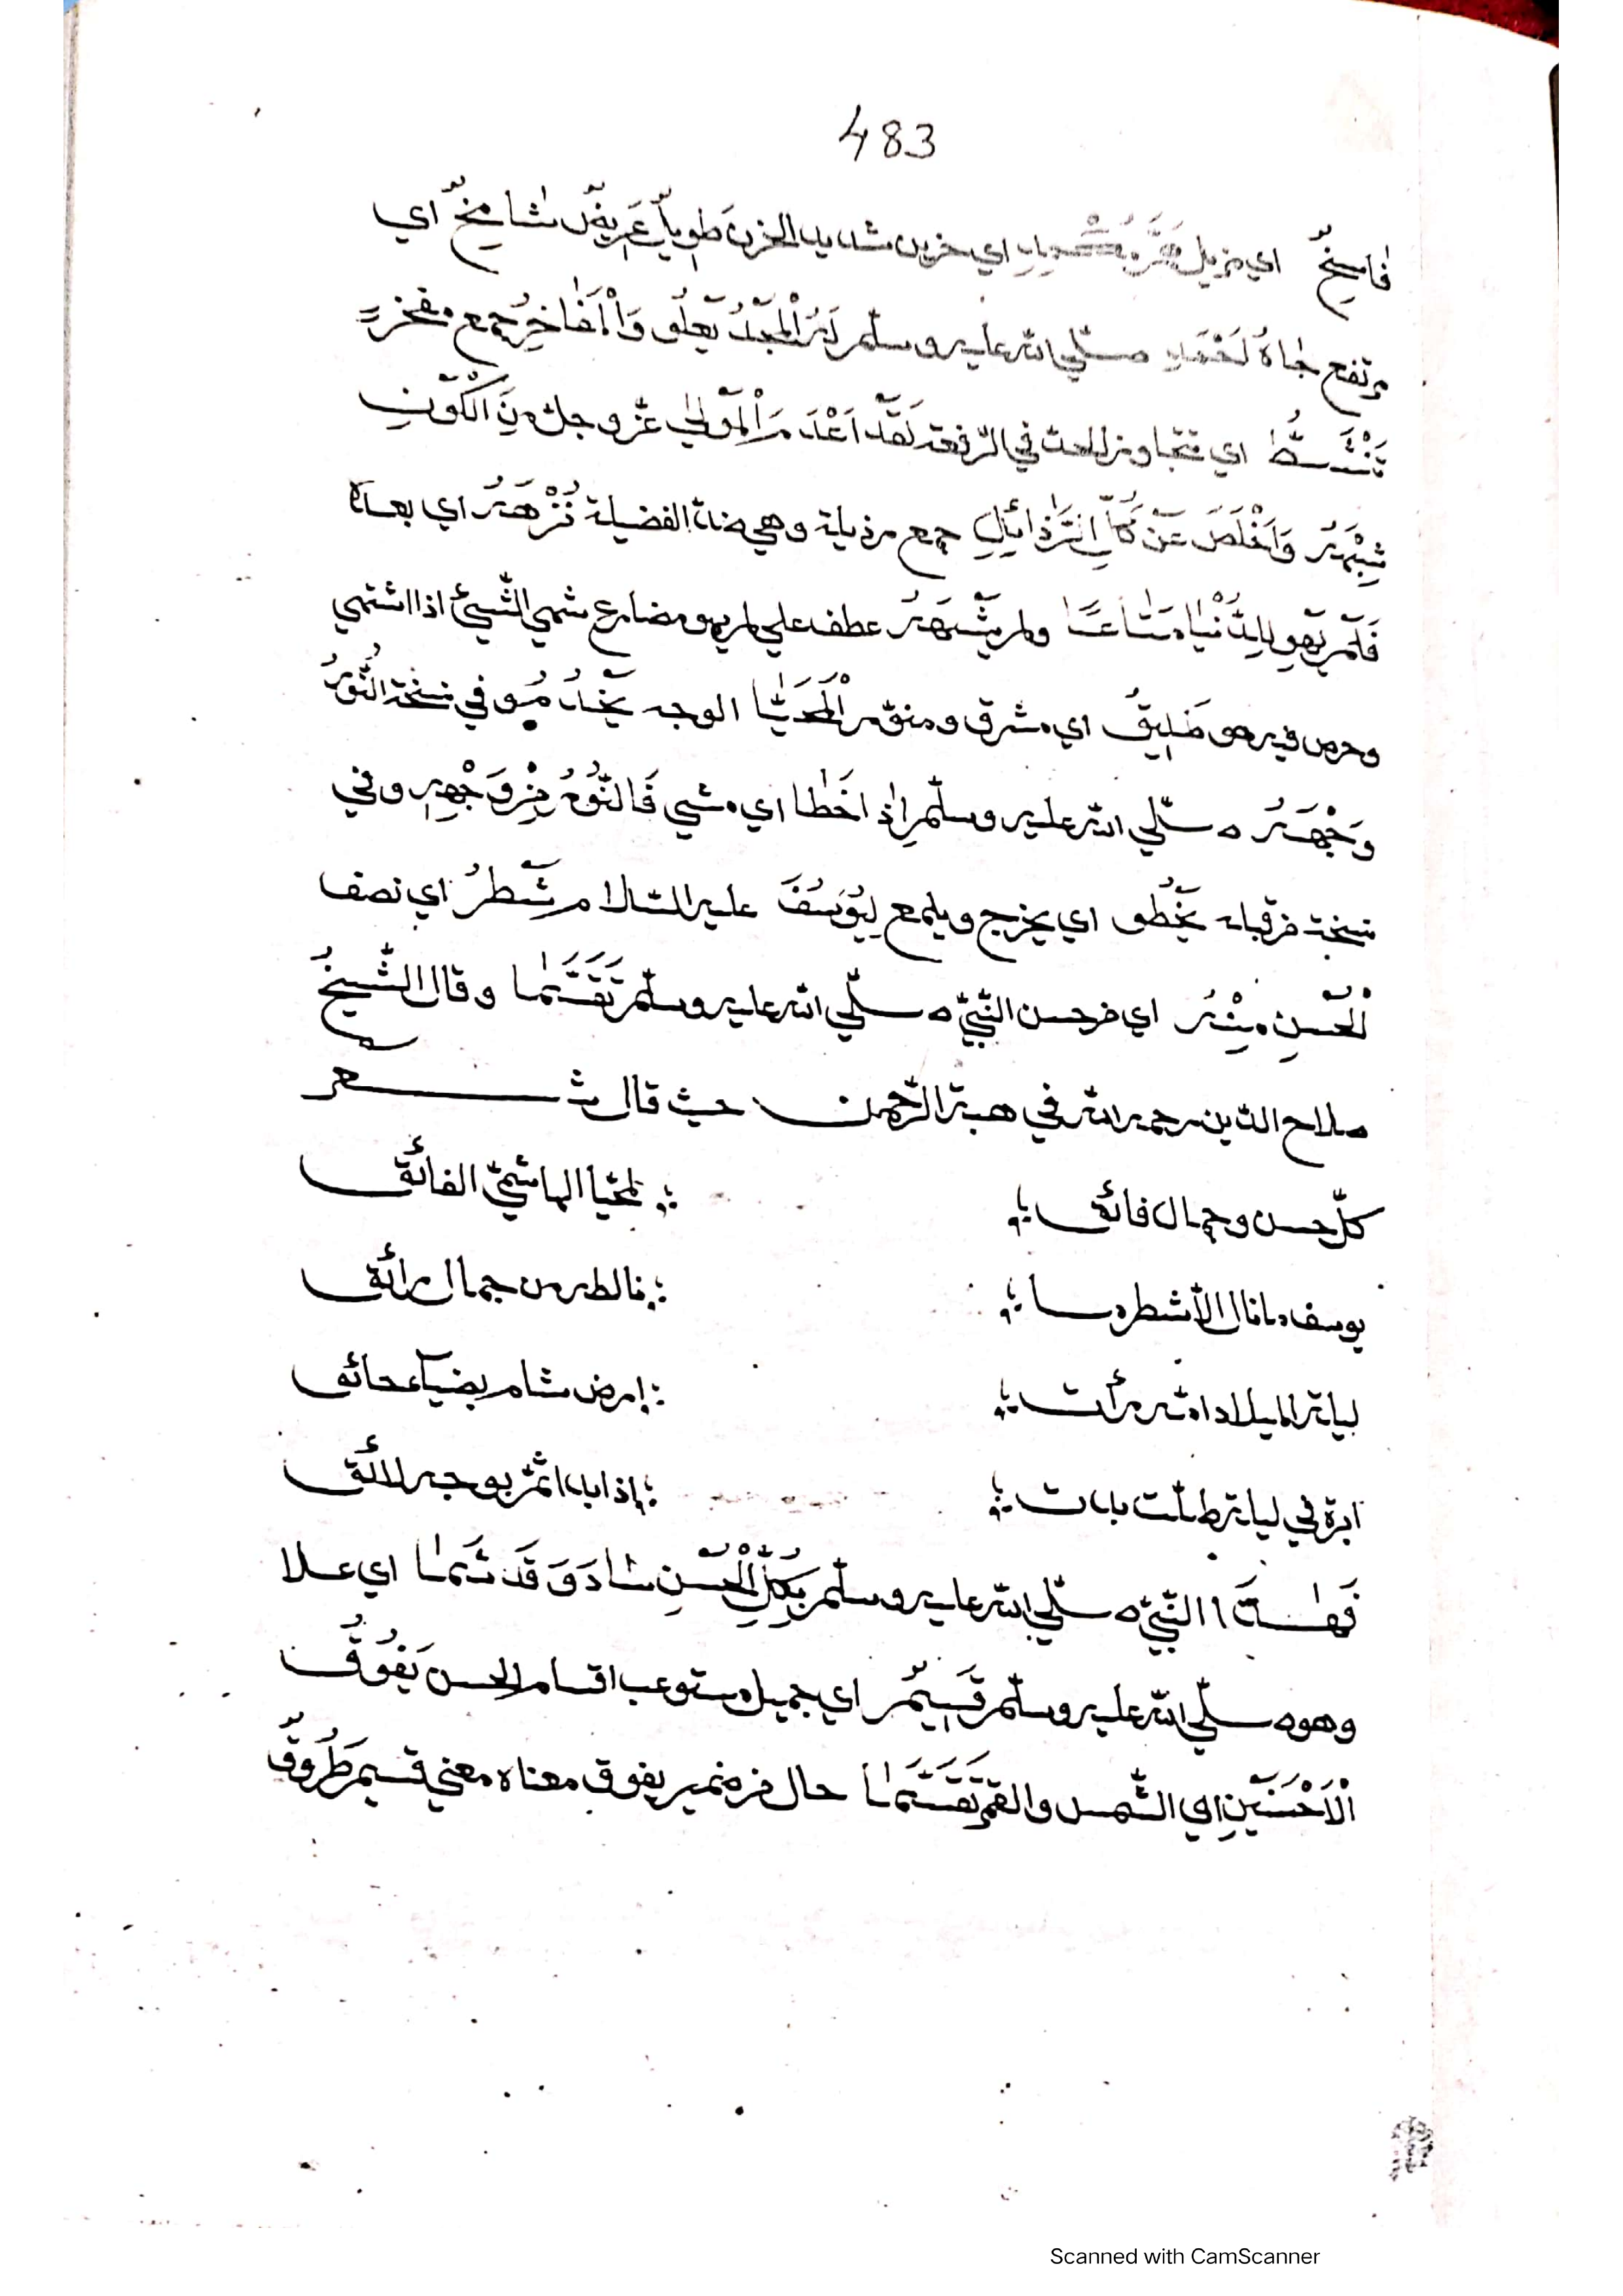 483
فَاسِخٌ اي مزيل اي حزين شديد الحزن طَوِيلٌ عَرِيضٌ شَامِخٌ اي
مرتفع جَاهُ صلّي الله عليه وسلّم لَهُ الْمَجْدُ يَعْلُو وَالْمَفَاخِرُ جمع مفخرة
تَنْشَطُّ اي تتجاوز الحدّ في الرّفعة لَقَدْ اَعْدَمَ الْمَوْلٰي عزّ وجلّ مِنَ الْكَوْنِ
شِبْهَهُ وَاَخْلَصَ عَنْ كُلِّ الرَّذَائِلِ جمع رذيلة وهي ضدّ الفضيلة نُزْهَهُ اي بعده
فَلَمْ يَهْوِ لِلدُّنْيَا مَتَاعًا ولم يَشْهَهُ عطف علي لم يهو مضارع شهي الشّيئ اذا اشتهي
وحرص فيه هو طَلِيقُ اي مشرق ومنوّر الْمُحَيَّا الوجه في نسخة النُّورُ
وَجْهَهُ صلّي الله عليه وسلّم اِذَا خَطَا اي مشي فَالنُّورُ مِنْ وَجْهِهِ وفي
نسخة من قبله يَخْطُو اي يخرج ويلمع لِيُوسُفَ عليه السّلام شَطْرُ اي نصف
الْحُسْنِ مِنْهُ اي من حسن النّبيّ صلّي الله عليه وسلّم تَقَسَّمَا وقال الشّيخ
صلاح الدّين رحمه الله في هبة الرّحمن حيث قال شعر
كلّ حسن وجمال فائق ؛ ؛ لمحيّا الهاشميّ الفائق
يوسف ما نال الّا شطر ما ؛ ؛ نال طه من جمال رائق
ليلة الميلاد امّه رأت ؛ ؛ ارض شام بضياء حائق
ابرة في ليلة ظلّت بدت ؛ ؛ اذ ابدا ثمّ بوجه لائق
فَطٰهَ النّبيّ صلّي الله عليه وسلّم بِكُلِّ الْحُسْنِ سَادَ وَقَدْ سَمَا اي علا
وهو صلّي الله عليه وسلّم قَسِيمٌ اي جميل مستوعب اقسام الحسن يَفُوقُ
الْاَحْسَنَيْنِ اي الشّمس والقمر تَقَسَّمَا حال من ضمير يفوق معناه معني قسيم طَرُوقٌ
Scanned with CamScanner